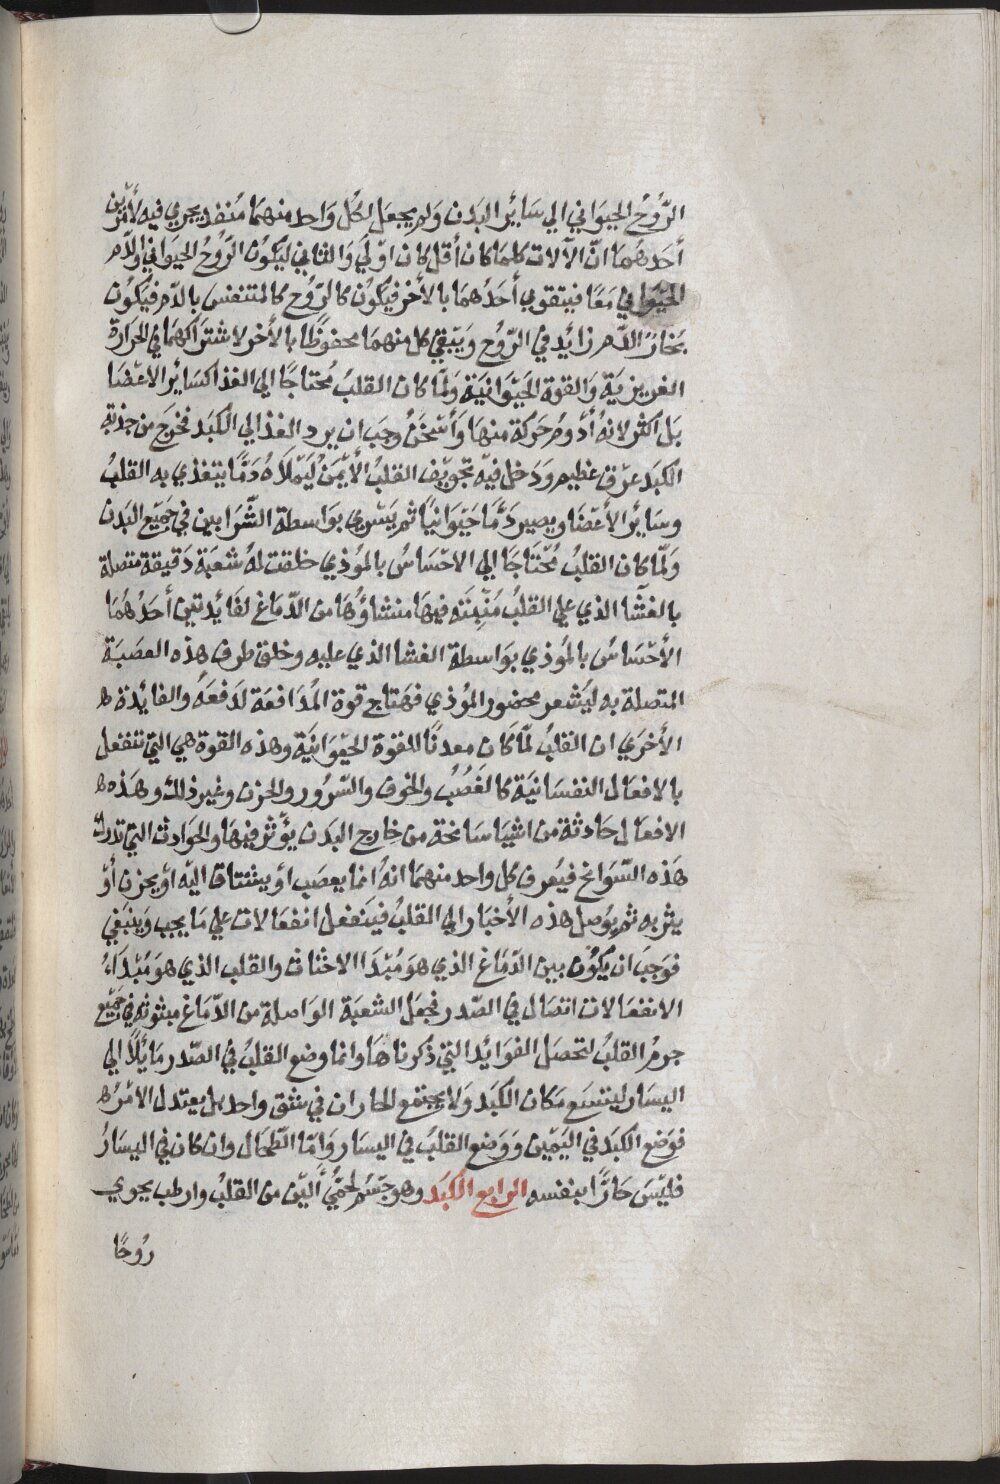 الرُّوحُ الحيوَاني الي سَايُر البَدن وَلم يجعل لكُل وَاحد منهمَا مُنفد يجري فيه لأمْرين
أحَدهُمَا انّ الآلات كلمَا كان أقل كان اوْلَي وَالثاني ليَكونُ الرّوحُ الحيوَاني والدّم
الحَيوَاني مَعًا فيتقوي أحَدُهمَا بالأخر فيكُونُ كالرّوُح كالمتنفس بالدّم فيَكُون
بخَارُ الدّم زايُد في الرّوُح وَيَبْقي كل منهمَا محفوظًا بالأخر لاشترَاكهمَا في الحَرارة
الغريزيَة وَالقوة الحَيْوَانيَة وَلمّا كان القلبُ مُحتاجًا الي الغذا كسَايُر الأعْضَا
بَل اكثر لانهُ أدْومُ حَركة منهَا وَأسْخَنُ وجَب ان يرد الغذ الي الكَبَد فخرَج من جذبة
الكبَد عرْق عَظيم وَدَخل فيْه تجويْف القلبُ الأيْمَنْ ليَمْلاَهُ دَمًا يتغذي به القلبُ
وسَايُر الأعْضَا ويصير دَمًّا حَيْوَانيًا ثم يَسْري بوَاسطة الشّرَايين في جَميْع البَدن
وَلمّا كان القلبُ مُحْتَاجَا الي الاحْسَاسُ بالمُوذي خلقت لهُ شعبَة دَقيقة متصلة
بالغشَا الذي علي القلبُ مُنْبتَّه فيهَا منشاؤُهَا من الدّمَاغ لفَايُدتين أحَدُهُمَا
الأحْسَاسُ بالمُوذي بوَاسطة الغشا الذي عليه وخلق طرف هذه العصَبَة
المتصلة به ليَشعر بحضور المُوذي فهتاج قوة المُدَافعَة لدَفعَهُ والفايُدة ه
الأخرَي ان القلبُ لمّا كَان معدنًا للقوة الحَيْوَانيَة وهذه القوة هي التي تنفعل
بالافعَال النفسَانيَة كالغَضُبُ والخوف والسّرُور والحزن وغير ذلك وهَذه ه
الافعَال حَادثة من اشيَا سَانحة من خارج البَدن يؤثر فيهَا والحوَادث التي تدرك
هَذه السّوَانح فيُعرف كل واحد منهمَا انهُ انما يعصَب اوْ يشتاق اليْه اوْ يحزن أوْ
يثر به ثم يوُصل هذه الأخبَار الي القلبُ فيَنفعل انفعَالات علي مَا يجب وَينبَغي
فوَجَب ان يَكُون بين الدّمَاغ الذي هوَ مُبْدَا الاخْنَاف والقلب الذي هوَ مُبْدَاءُ
الانفعَالات اتصَال في الصّدر فجعَل الشعبَة الوَاصلة من الدّمَاغ مبثوثه في جَمْيع
جرمُ القلبُ لتحصَل الفوَايُد التي ذُكرناهَا وانما وضع القلبُ في الصّدر مَايُلاً الي
اليسَار ليتسَع مَكان الكبَد وَلا يجتمع الحاران في شق واحد بل يعتدل الامْرُ ه
فوَضع الكبَد في اليَمْين وَوَضع القلبُ في اليسَار وَامّا الطّحَال وان كان في اليسَارُ
فليْسَ حَارًا بنفسه الرابع الكبَد وهو جسْم لحَمُّي أليّن من القلبُ وارطب يحوي
رُوحًا